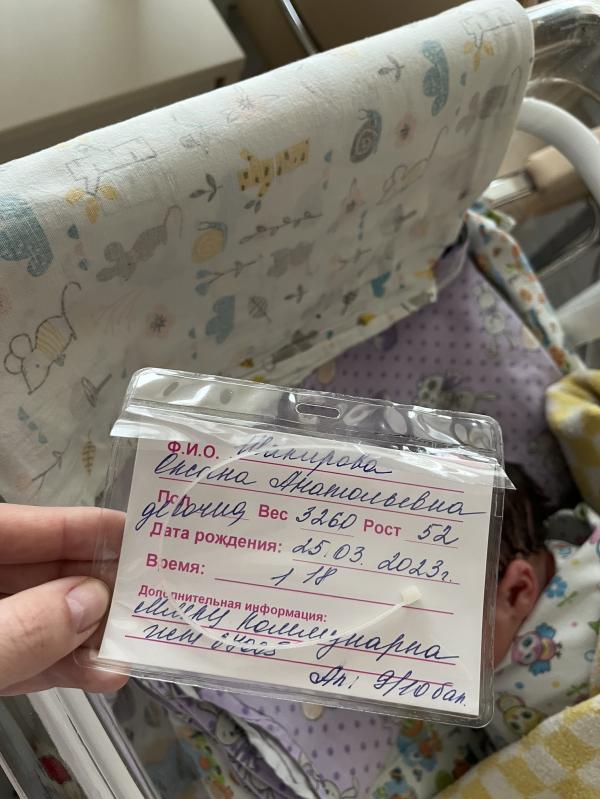 Ф.И.О. Шакирова
Оксана Анатольевна
Пол девочка Вес 3260 Рост 52
Дата рождения: 25.03.2023г.
Время: 1 18
Дополнительная информация:
Коммунарка
Ап: 9/10 бал.